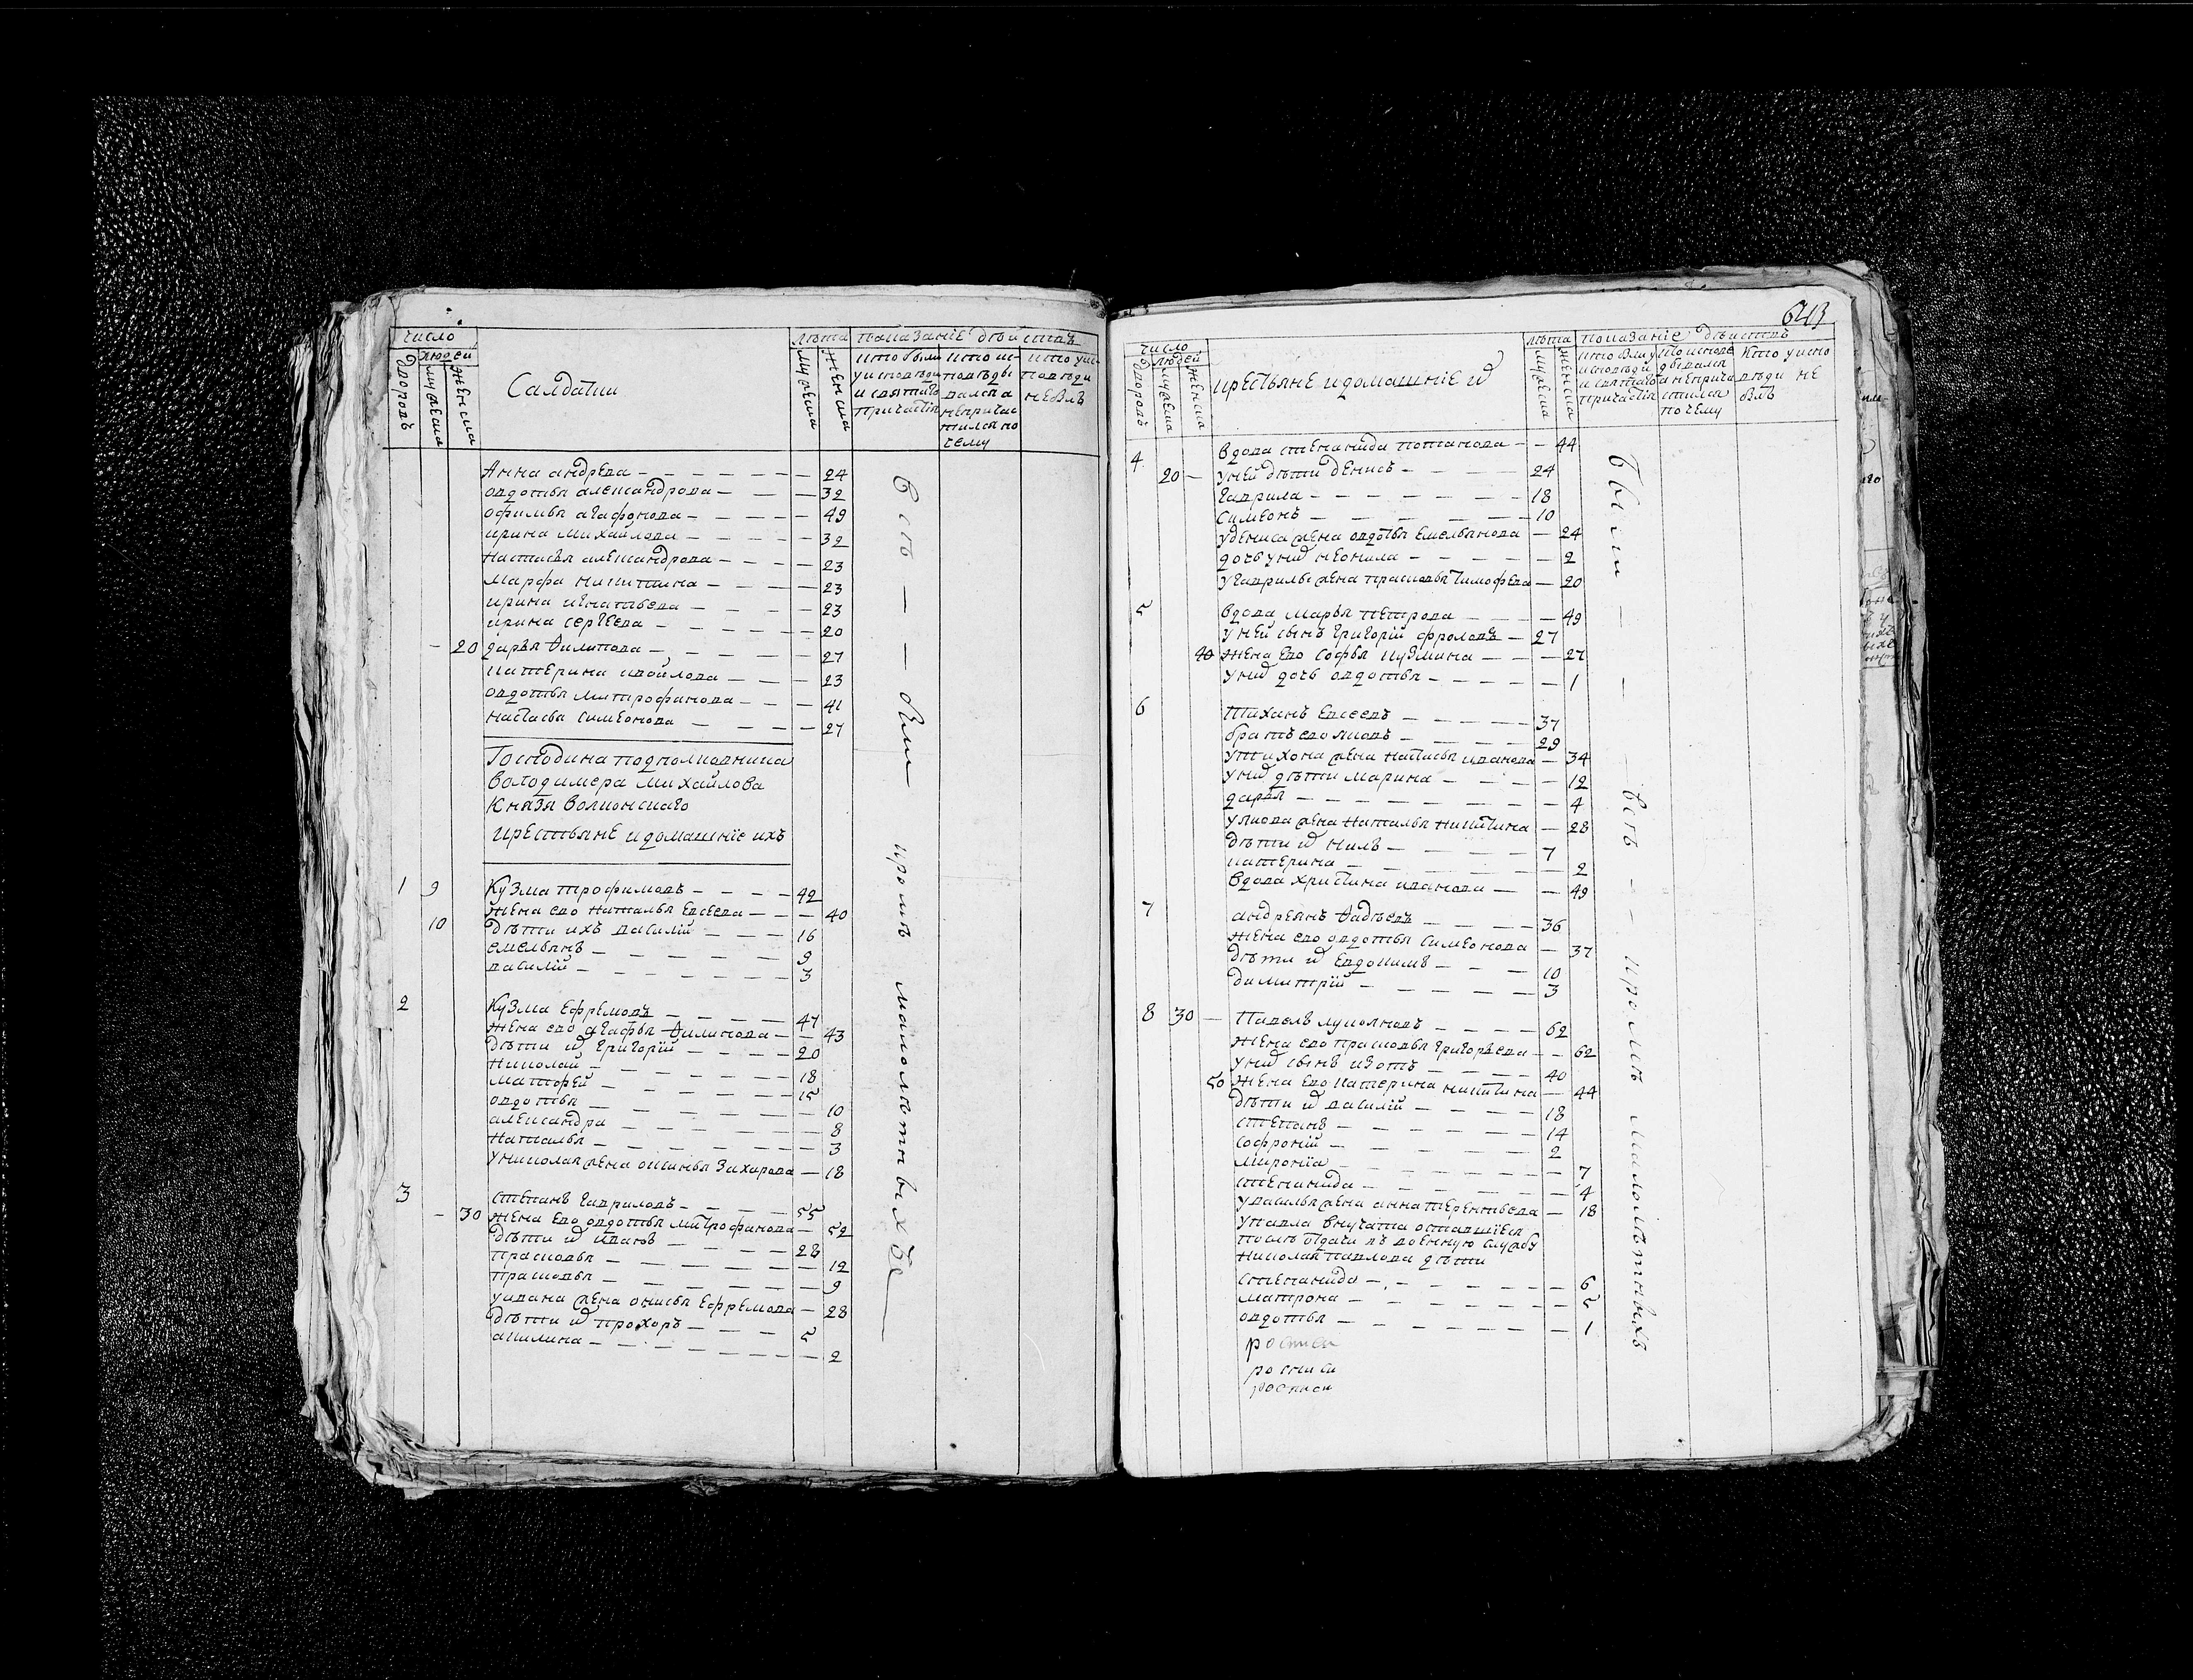 число
людей
дворовъ
мужеска
женска
Салдатки
лѣта
мужеска
женска
показанїе дѣйствъ
кто были у исповѣди и святаго причастїя
кто исповѣдывался а не причастился по чему
кто у исповѣди не былъ
Анна андрева — 24
овдотья александрова — 32
офимья агафонова — 49
ирина михайлова — 32
настасья александрова — 23
марфа никитина — 23
ирина игнатьева — 23
ирина сергеева — 20
20 дарья Филипова — 27
катерина ивойлова — 23
овдотья митрофанова — 41
настасья симеонова — 27
Господина подполковника
володимера михайлова
Князя волконскаго
крестьяне и домашнїе ихъ
1 9 Кузма трофимовъ — 42
жена ево наталья евсеева — 40
10 дѣти ихъ василїй — 16
емельянъ — 9
василїй — 3
2 Кузма ефремовъ — 47
жена ево агафья Филипова — 43
дѣти их григорїй — 20
николай — 18
матфей — 15
овдотья — 10
александра — 8
наталья — 3
у николая жена Захарова — 18
3 степанъ гавриловъ — 55
30 жена ево овдотья митрофанова — 52
дѣти их иванъ — 28
прасковья — 12
прасковья — 9
у ивана жена онисья ефремова — 28
дѣти их прохоръ — 5
акилина — 2
были кромѣ малолѣтныхъ
643
число
людей
дворовъ
мужеска
женска
крестьяне и домашнїе их
лѣта
мужеска
женска
показанїе дѣиствъ
кто были у исповѣди и святаго причастїя
кто исповедывался а не причастился по чему
кто у исповѣди не былъ
4 вдова степанида потапова — 44
20 у ней дѣти денисъ — 24
гаврила — 18
симеонъ — 10
у дениса жена овдотья емельянова — 24
дочь у них неонила — 2
у гаврилы жена прасковья тимофева — 20
5 вдова марья петрова — 49
у ней сынъ григорїй фроловъ — 27
40 жена ево софья кузмина — 27
у них дочь овдотья — 1
6 тиханъ евсеевъ — 37
братъ ево яковъ — 29
у тихона жена настасья иванова — 34
у них дѣти марина — 12
дарья — 4
у якова жена наталья никитина — 28
дѣти их нилъ — 7
катерина — 2
вдова христина иванова — 49
7 андреянъ Фадѣевъ — 36
жена ево овдотья симеонова — 37
дѣти их евдокимъ — 10
димитрїй — 3
8 30 Павелъ лукояновъ — 62
жена ево прасковья григорьева — 62
у них сынъ изотъ — 40
50 жена ево катерина никитина — 44
дѣти их василїй — 18
степанъ — 14
софронїй — 2
миронїа — 7
степанида — 4
у василья жена анна терентьева — 18
у павла внучата оставшїеся
послѣ отдачи въ военную службу
николая павлова дѣти
степанида — 6
матрона — 5
овдотья — 1
росписи
росписи
росписи
Были — всѣ — кромѣ малолѣтныхъ